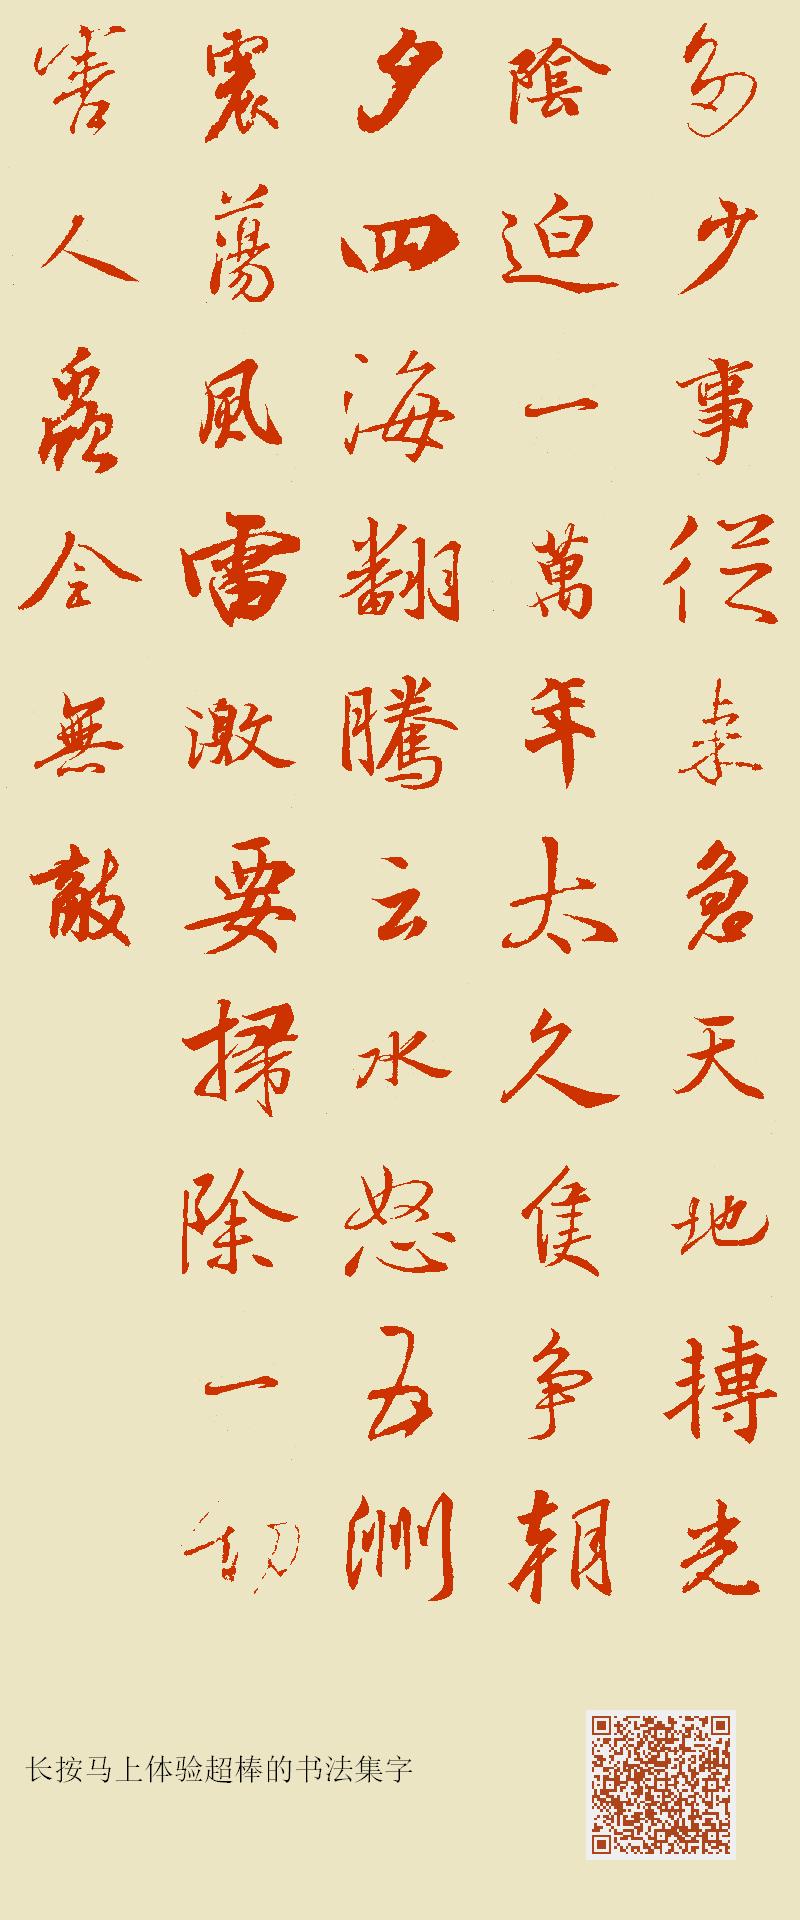 多少事從来急天地轉光
陰迫一萬年太久隻争朝
夕四海翻騰云水怒五洲
震蕩風雷激要掃除一切
害人蟲全無敵
长按马上体验超棒的书法集字